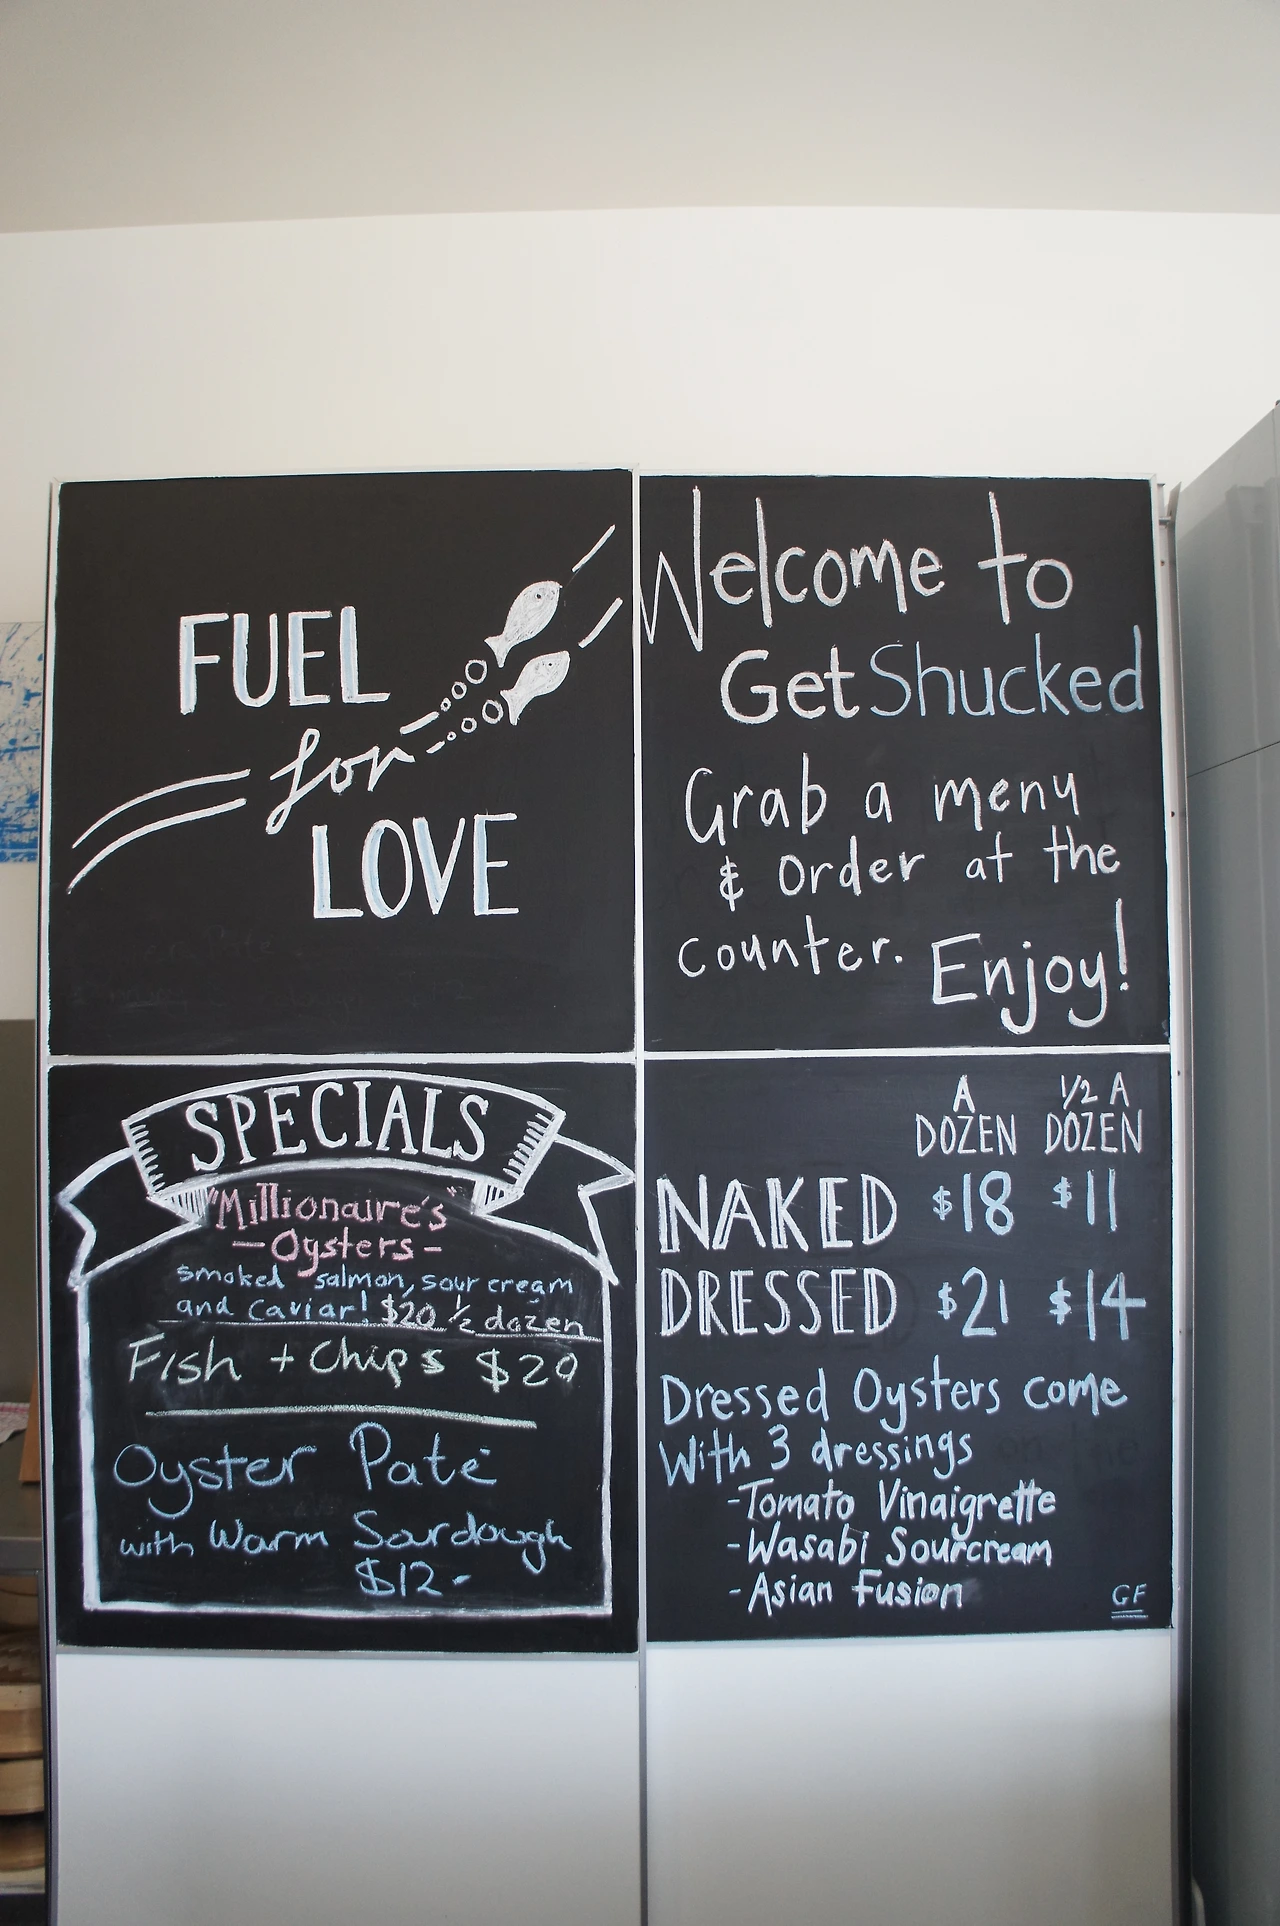 FUEL
for
LOVE
Welcome to
Get Shucked
Grab a menu
& order at the
counter. Enjoy!
SPECIALS
"Millionaire's"
- Oysters -
smoked salmon, sour cream
and caviar! $20 ½ dozen
Fish + Chips $20
Oyster Paté
with Warm Sourdough
$12-
A DOZEN ½ A DOZEN
NAKED $18 $11
DRESSED $21 $14
Dressed Oysters come
With 3 dressings
- Tomato Vinaigrette
- Wasabi Sourcream
- Asian Fusion
GF